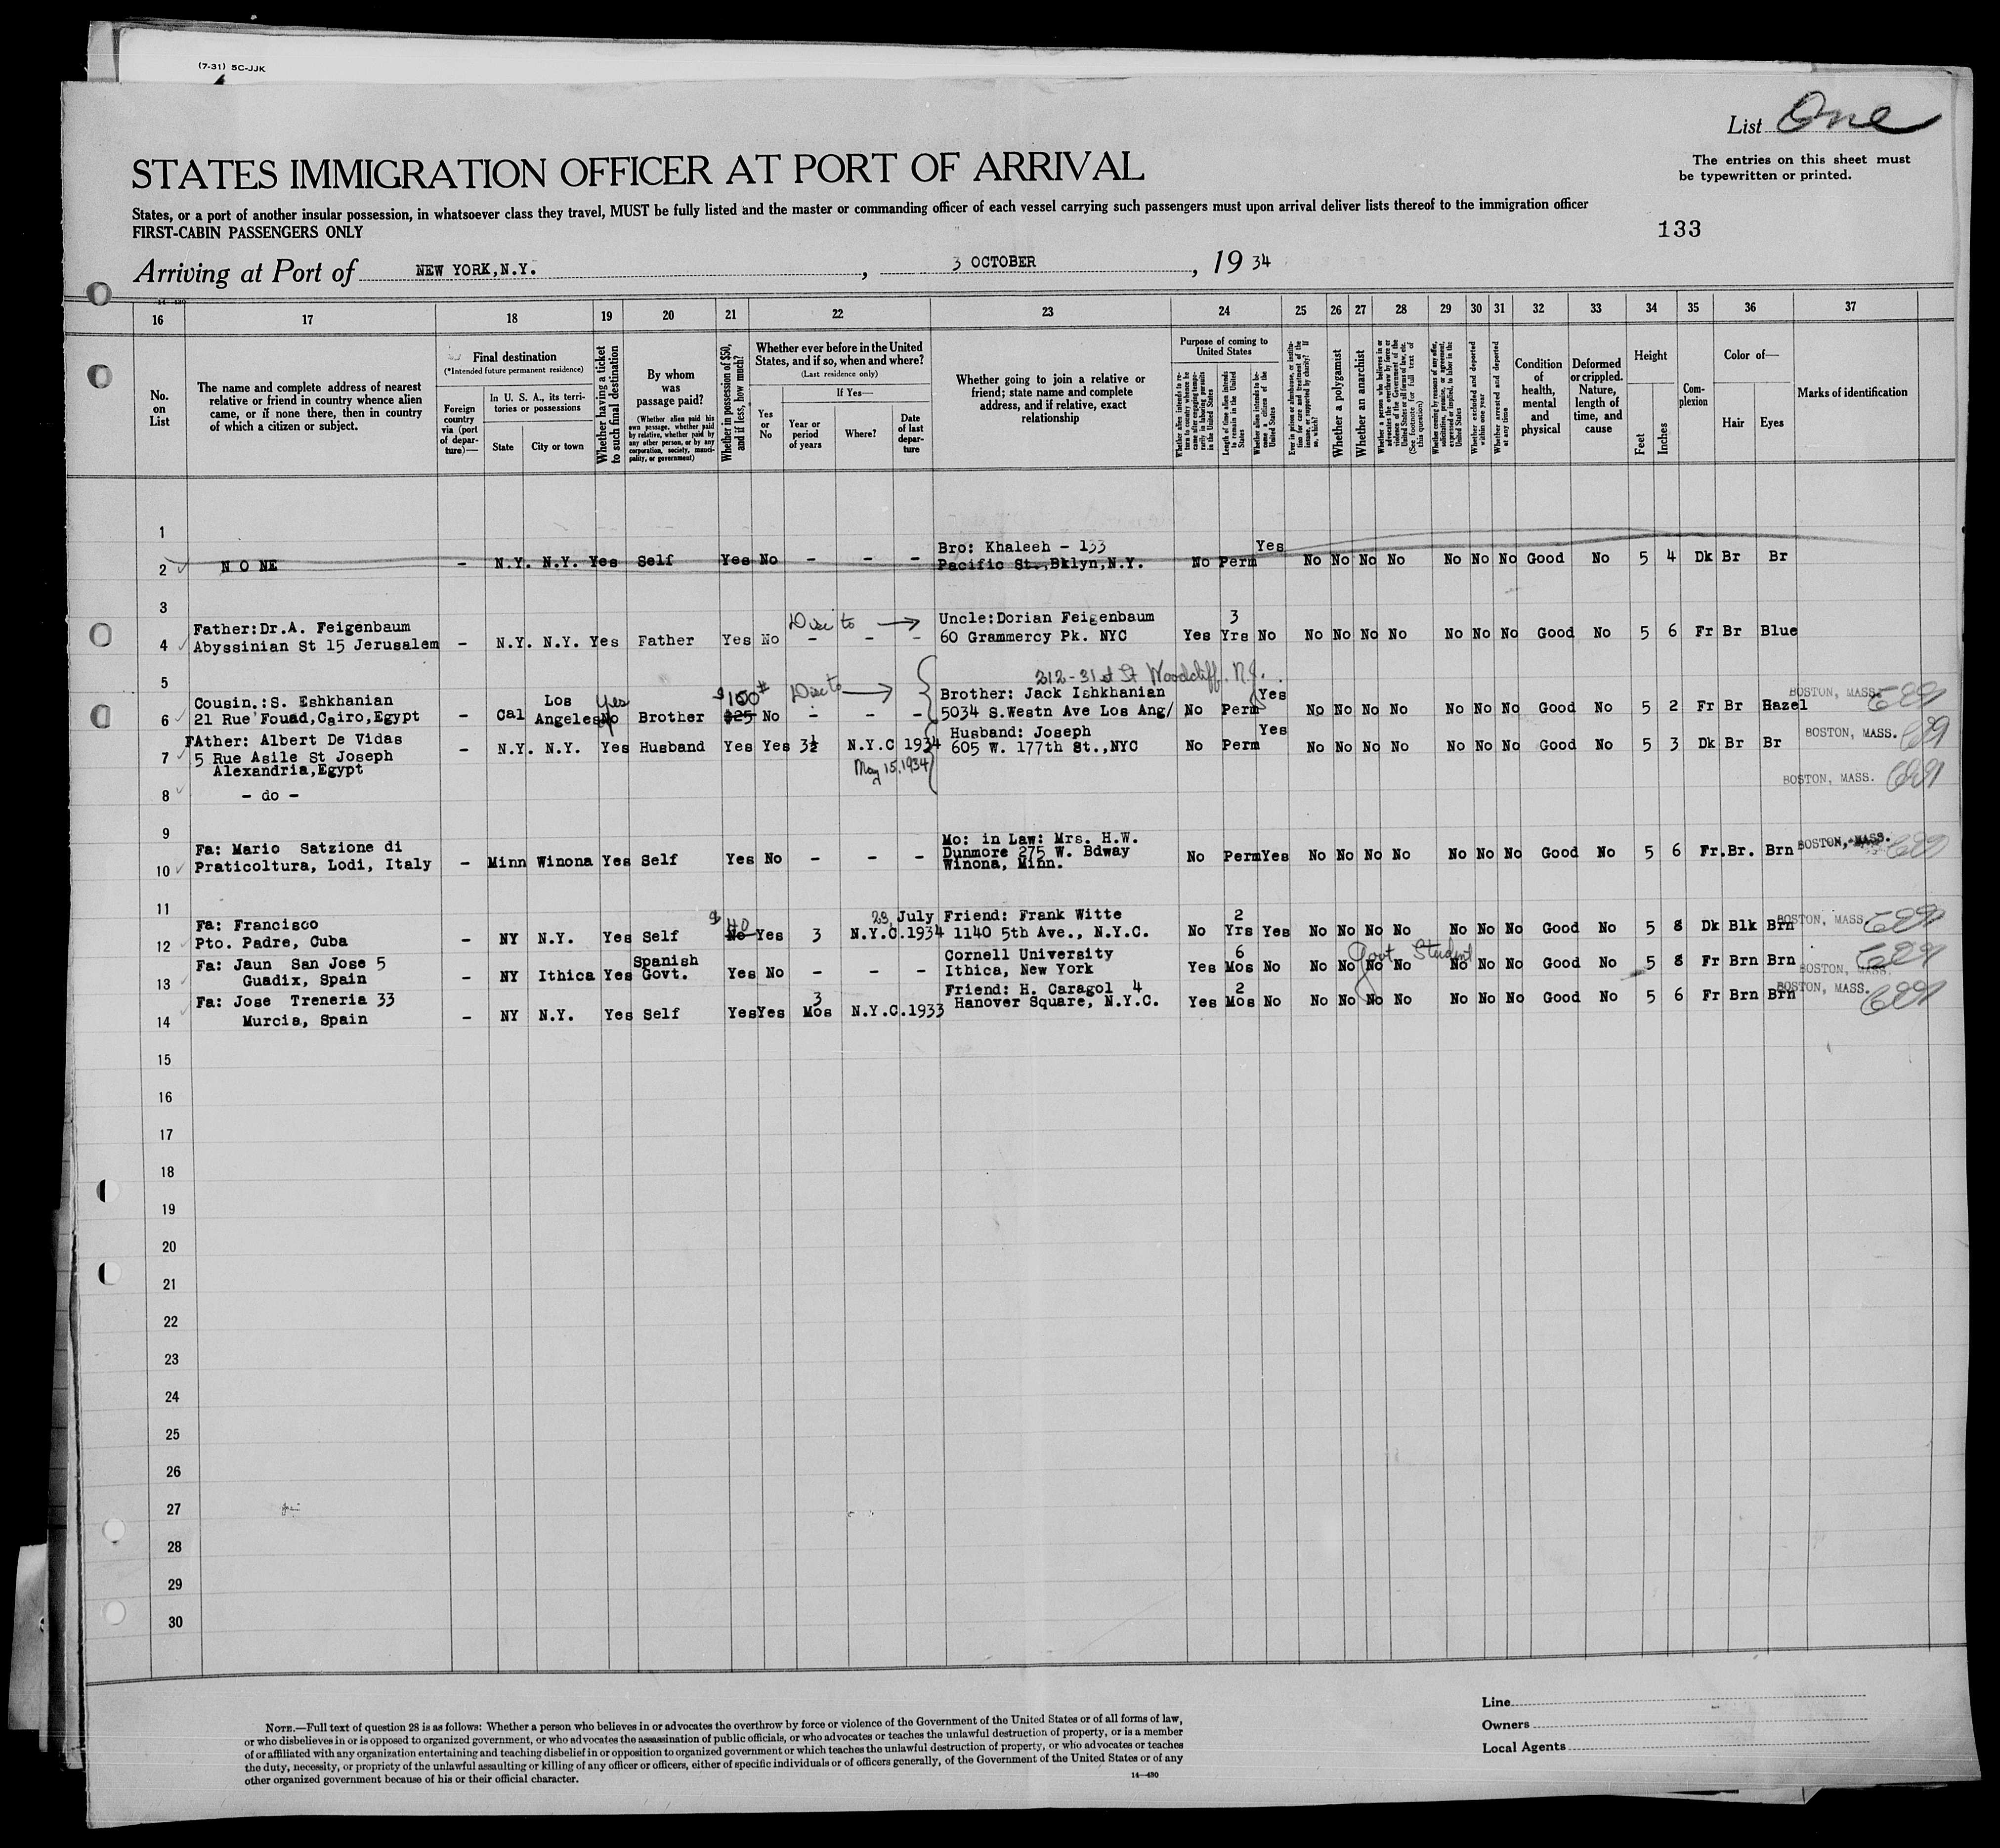 (7-31) 5C-JJK
List One
STATES IMMIGRATION OFFICER AT PORT OF ARRIVAL
The entries on this sheet must
be typewritten or printed.
States, or a port of another insular possession, in whatsoever class they travel, MUST be fully listed and the master or commanding officer of each vessel carrying such passengers must upon arrival deliver lists thereof to the immigration officer
FIRST-CABIN PASSENGERS ONLY
133
Arriving at Port of NEW YORK,N.Y. , 3 OCTOBER , 19 34
16 17 18 19 20 21 22 23 24 25 26 27 28 29 30 31 32 33 34 35 36 37
No. on List
The name and complete address of nearest
relative or friend in country whence alien
came, or if none there, then in country
of which a citizen or subject.
Final destination
(*Intended future permanent residence)
Foreign country via (port of departure)—
In U. S. A., its territories or possessions
State
City or town
Whether having a ticket to such final destination
By whom was passage paid?
(Whether alien paid his own passage, whether paid by relative, whether paid by any other person, or by any corporation, society, municipality, or government)
Whether in possession of $50, and if less, how much?
Whether ever before in the United States, and if so, when and where?
(Last residence only)
Yes or No
If Yes—
Year or period of years
Where?
Date of last departure
Whether going to join a relative or
friend; state name and complete
address, and if relative, exact
relationship
Purpose of coming to United States
Whether alien intends to return to country whence he came after engaging temporarily in laboring pursuits in the United States
Length of time alien intends to remain in the United States
Whether alien intends to become a citizen of the United States
Ever in prison or almshouse, or institution for care and treatment of the insane, or supported by charity? If so, which?
Whether a polygamist
Whether an anarchist
Whether a person who believes in or advocates the overthrow by force or violence of the Government of the United States or all forms of law, etc. (See footnote for full text of this question)
Whether coming by reason of any offer, solicitation, promise, or agreement, expressed or implied, to labor in the United States
Whether excluded and deported within one year
Whether arrested and deported at any time
Condition of health, mental and physical
Deformed or crippled. Nature, length of time, and cause
Height
Feet
Inches
Complexion
Color of—
Hair
Eyes
Marks of identification
1
Bro: Khaleeh - 133 Yes
2 N O NE - N.Y. N.Y. Yes Self Yes No - - - Pacific St.,Bklyn,N.Y. No Perm No No No No No No No Good No 5 4 Dk Br Br
3
Father:Dr.A. Feigenbaum Uncle:Dorian Feigenbaum 3
4 Abyssinian St 15 Jerusalem - N.Y. N.Y. Yes Father Yes No - - - 60 Grammercy Pk. NYC Yes Yrs No No No No No No No No Good No 5 6 Fr Br Blue
5 212-31st St Woodcliff. N.J.
Cousin.:S. Eshkhanian Los Yes $100 Brother: Jack Ishkhanian Yes BOSTON, MASS.
6 21 Rue Fouad,Cairo,Egypt - Cal Angeles No Brother $25 No - - - 5034 S.Westn Ave Los Ang/ No Perm No No No No No No No Good No 5 2 Fr Br Hazel
FAther: Albert De Vidas Husband: Joseph Yes BOSTON, MASS.
7 5 Rue Asile St Joseph - N.Y. N.Y. Yes Husband Yes Yes 3½ N.Y.C 1934 605 W. 177th St.,NYC No Perm No No No No No No No Good No 5 3 Dk Br Br
Alexandria,Egypt May 15, 1934 BOSTON, MASS.
8 - do -
9
Fa: Mario Satzione di Mo: in Law: Mrs. H.W.
10 Praticoltura, Lodi, Italy - Minn Winona Yes Self Yes No - - - Dunmore 275 W. Bdway No Perm Yes No No No No No No No Good No 5 6 Fr. Br. Brn BOSTON, MASS.
Winona, Minn.
11
Fa: Francisco $40 23 July Friend: Frank Witte 2 BOSTON, MASS.
12 Pto. Padre, Cuba - NY N.Y. Yes Self No Yes 3 N.Y.C.1934 1140 5th Ave., N.Y.C. No Yrs Yes No No No No No No No Good No 5 8 Dk Blk Brn
Fa: Jaun San Jose 5 Spanish Cornell University 6 Govt Student
13 Guadix, Spain - NY Ithica Yes Govt. Yes No - - - Ithica, New York Yes Mos No No No No No No No No Good No 5 8 Fr Brn Brn BOSTON, MASS.
Fa: Jose Treneria 33 3 Friend: H. Caragol 4 2 BOSTON, MASS.
14 Murcia, Spain - NY N.Y. Yes Self Yes Yes Mos N.Y.C.1933 Hanover Square, N.Y.C. Yes Mos No No No No No No No No Good No 5 6 Fr Brn Brn
15
16
17
18
19
20
21
22
23
24
25
26
27
28
29
30
NOTE.—Full text of question 28 is as follows: Whether a person who believes in or advocates the overthrow by force or violence of the Government of the United States or of all forms of law,
or who disbelieves in or is opposed to organized government, or who advocates the assassination of public officials, or who advocates or teaches the unlawful destruction of property, or is a member
of or affiliated with any organization entertaining and teaching disbelief in or opposition to organized government or which teaches the unlawful destruction of property, or who advocates or teaches
the duty, necessity, or propriety of the unlawful assaulting or killing of any officer or officers, either of specific individuals or of officers generally, of the Government of the United States or of any
other organized government because of his or their official character.
14—430
Line
Owners
Local Agents